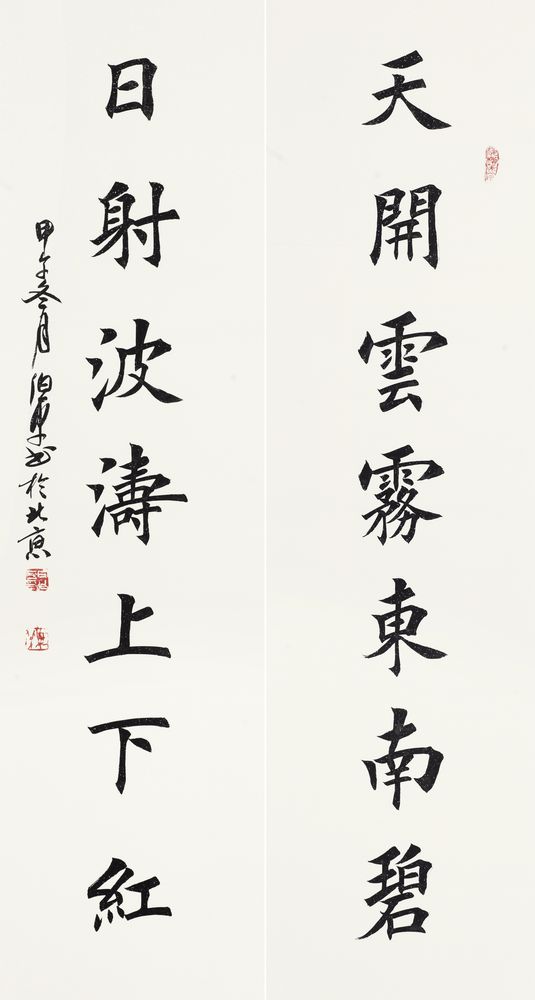 天開雲霧東南碧
日射波濤上下紅
甲午冬月 伯東書於北京